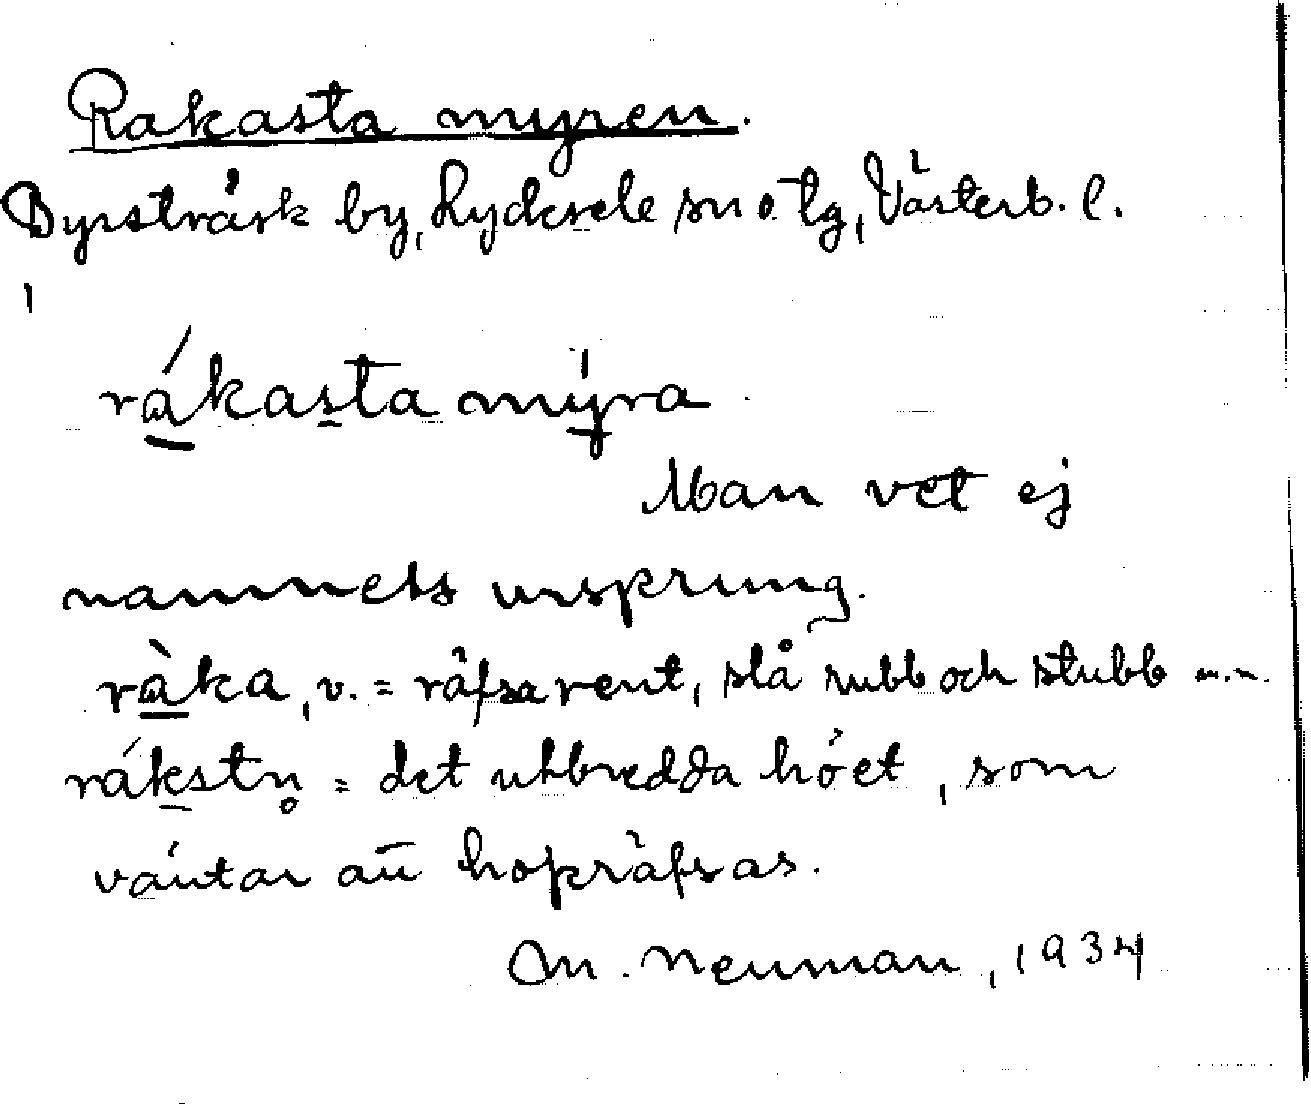 Rakasta myren.
Byssträsk by, Lycksele sn o. tg, Västerb. l.
rákasta mýra
Man vet ej
namnets ursprung.
ràka, v. = räfsa rent, slå rubb och stubb m.m.
rákstn̥ = det utbredda höet, som
väntar att hopräfsas.
M. Neuman, 1934